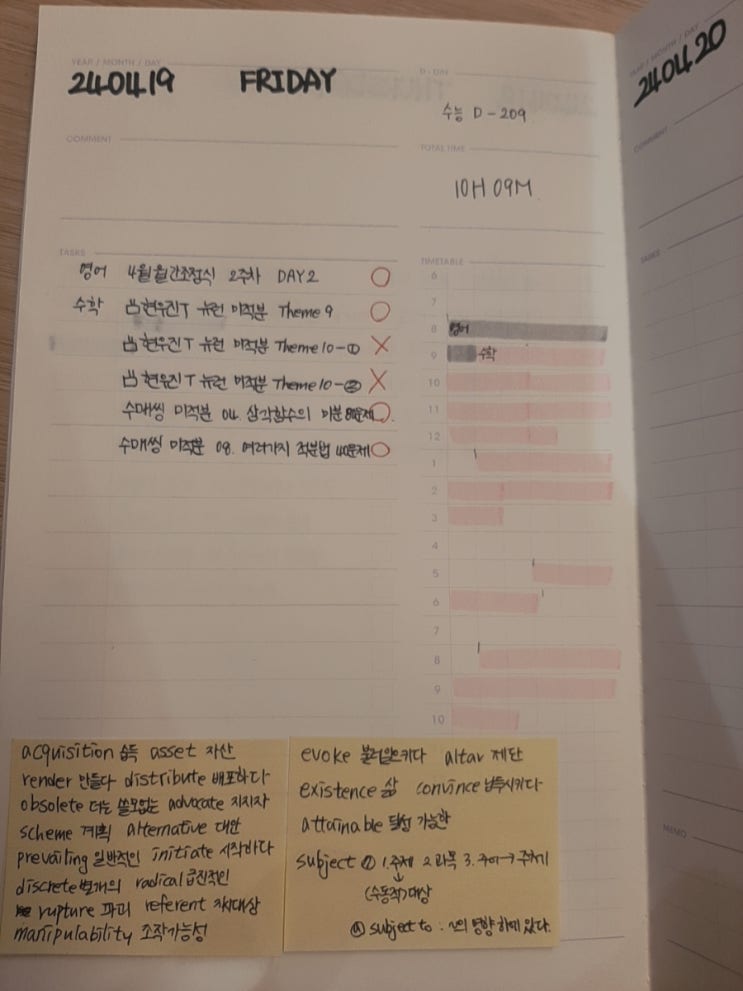 YEAR / MONTH / DAY
240419 FRIDAY
D-DAY
수능 D-209
COMMENT
TOTAL TIME
10H 09M
TASKS
영어 4월 월간조정식 2주차 DAY2 O
수학 凸현우진T 뉴런 미적분 Theme 9 O
凸현우진T 뉴런 미적분 Theme 10-① X
凸현우진T 뉴런 미적분 Theme 10-② X
수매씽 미적분 04. 삼각함수의 미분 문제 O
수매씽 미적분 08. 여러가지 적분법 40문제 O
TIMETABLE
6
7
8 영어
9 수학
10
11
12
1
2
3
4
5
6
7
8
9
10
acquisition 습득 asset 자산
render 만들다 distribute 배포하다
obsolete 더는 쓸모없는 advocate 지지자
scheme 계획 alternative 대안
prevailing 일반적인 initiate 시작하다
discrete 별개의 radical 급진적인
rupture 파괴 referent 지시대상
manipulability 조작가능성
evoke 불러일으키다 altar 제단
existence 삶 convince 납득시키다
attainable 달성 가능한
subject ⓝ 1.주제 2.과목 3.주어→주체
↓
(수동적)대상
ⓐ subject to : ~의 영향 하에 있다.
YEAR / MONTH / DAY
240420
COMMENT
TASKS
MEMO